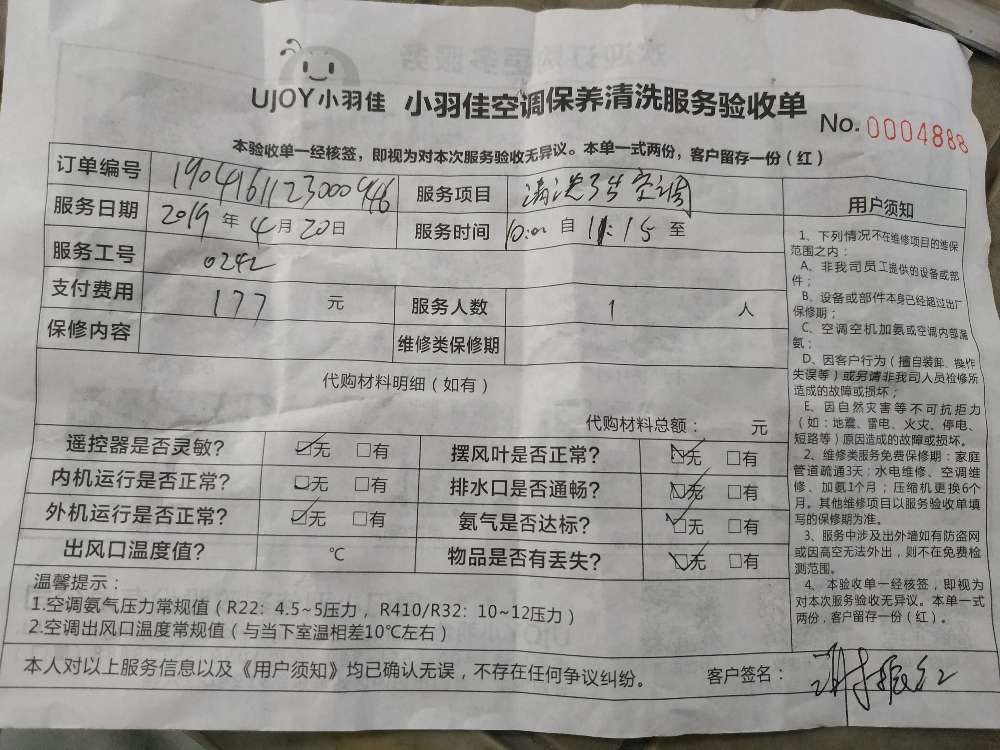 UJOY小羽佳 小羽佳空调保养清洗服务验收单
No. 0004888
本验收单一经核签，即视为对本次服务验收无异议。本单一式两份，客户留存一份（红）
订单编号 1904161123000946 服务项目
服务日期 2019年4月20日 服务时间 10:00自11:15至
服务工号 0242
支付费用 177 元 服务人数 1 人
保修内容 维修类保修期
代购材料明细（如有）
代购材料总额： 元
遥控器是否灵敏？ ☑无 □有 摆风叶是否正常？ ☑无 □有
内机运行是否正常？ ☑无 □有 排水口是否通畅？ ☑无 □有
外机运行是否正常？ ☑无 □有 氨气是否达标？ ☑无 □有
出风口温度值？ ℃ 物品是否有丢失？ ☑无 □有
温馨提示：
1.空调氨气压力常规值（R22：4.5~5压力，R410/R32：10~12压力）
2.空调出风口温度常规值（与当下室温相差10℃左右）
本人对以上服务信息以及《用户须知》均已确认无误，不存在任何争议纠纷。
客户签名：
用户须知
1、下列情况不在维修项目的维保
范围之内：
A、非我司员工提供的设备或部
件；
B、设备或部件本身已经超过出厂
保修期；
C、空调空机加氨或空调内部漏
氨；
D、因客户行为（擅自装卸、操作
失误等）或另请非我司人员检修所
造成的故障或损坏；
E、因自然灾害等不可抗拒力
（如：地震、雷电、火灾、停电、
短路等）原因造成的故障或损坏。
2、维修类服务免费保修期：家庭
管道疏通3天；水电维修、空调维
修、加氨1个月；压缩机更换6个
月。其他维修项目以服务验收单填
写的保修期为准。
3、服务中涉及出外墙如有防盗网
或因高空无法外出，则不在免费检
测范围。
4、本验收单一经核签，即视为
对本次服务验收无异议。本单一式
两份，客户留存一份（红）。